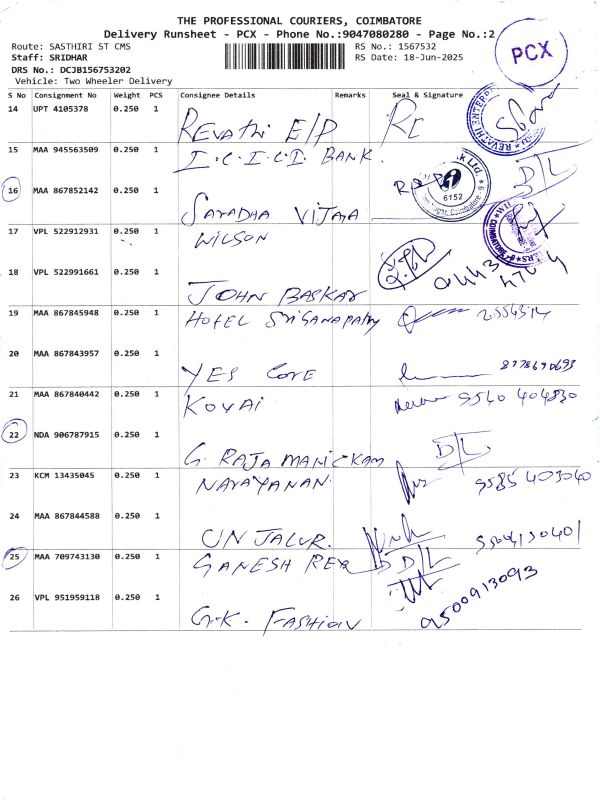 THE PROFESSIONAL COURIERS, COIMBATORE
Delivery Runsheet - PCX - Phone No.:9047080280 - Page No.:2
Route: SASTHIRI ST CMS RS No.: 1567532
Staff: SRIDHAR RS Date: 18-Jun-2025
DRS No.: DCJB156753202
Vehicle: Two Wheeler Delivery
PCX
S No Consignment No Weight PCS Consignee Details Remarks Seal & Signature
14 UPT 4105378 0.250 1 REVATHI E/P
15 MAA 945563509 0.250 1 I.C.I.C.I BANK.
6152
16 MAA 867852142 0.250 1 SARADHA VIJAYA D/L
17 VPL 522912931 0.250 1 WILSON
18 VPL 522991661 0.250 1 JOHN BASKAR
19 MAA 867845948 0.250 1 HOTEL SRIGANAPATHY
20 MAA 867843957 0.250 1 YES CORE 8778690693
21 MAA 867840442 0.250 1 KOVAI 9540 404830
22 NDA 906787915 0.250 1 G. RAJA MANICKAM D/L
23 KCM 13435045 0.250 1 NARAYANAN 9585 403040
24 MAA 867844588 0.250 1
25 MAA 709743130 0.250 1 GANESH D/L
26 VPL 951959118 0.250 1 G.K. FASHION 9500913093